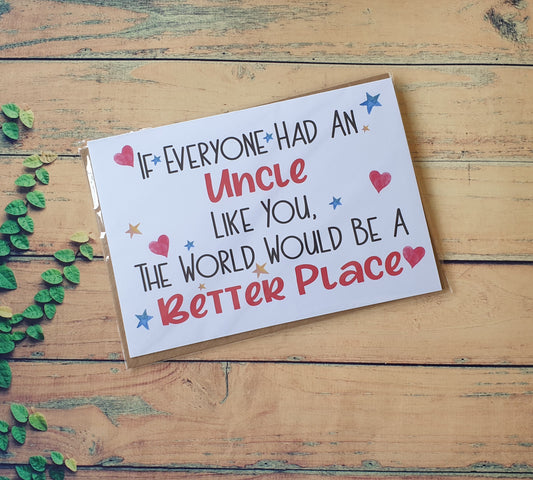 If Everyone Had An
Uncle
Like You,
The World Would Be A
Better Place